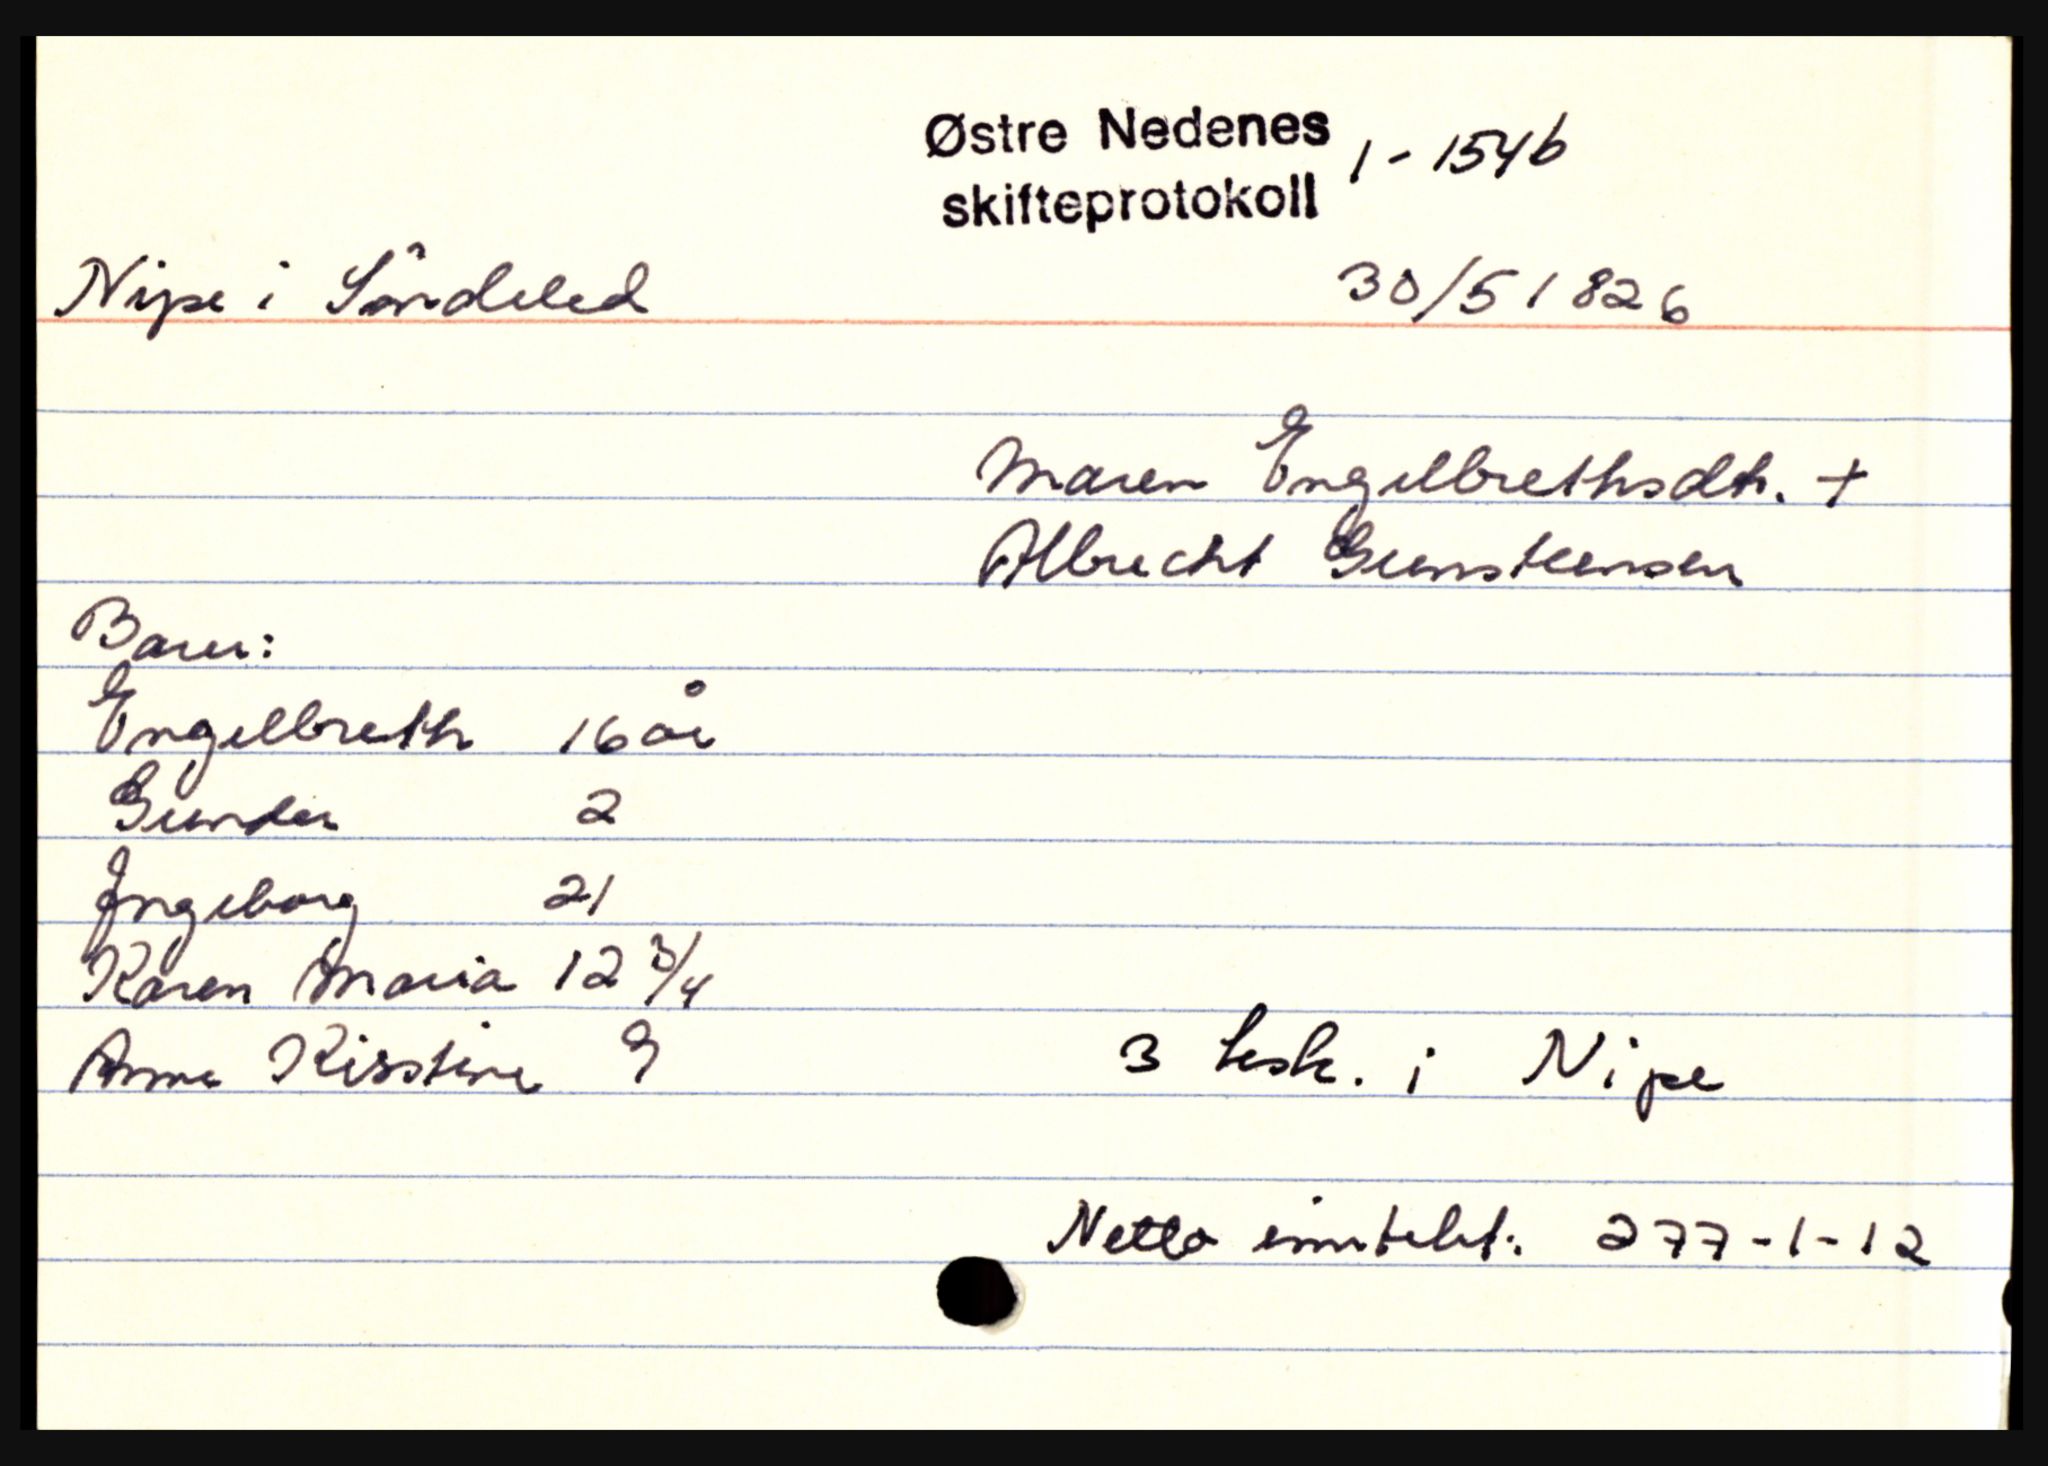 Østre Nedenes 1-154b
skifteprotokoll
Nipe i Söndeled 30/5 1826
Maren Engelbrethsdtr. +
Albrecht Gunsteensen
Barn:
Engelbreth 16 år
Gunder 2
Ingeborg 21
Karen Maria 12 3/4
Anne Kirstine 9 3 lesk. i Nipe
Netto inntekt. 277-1-12